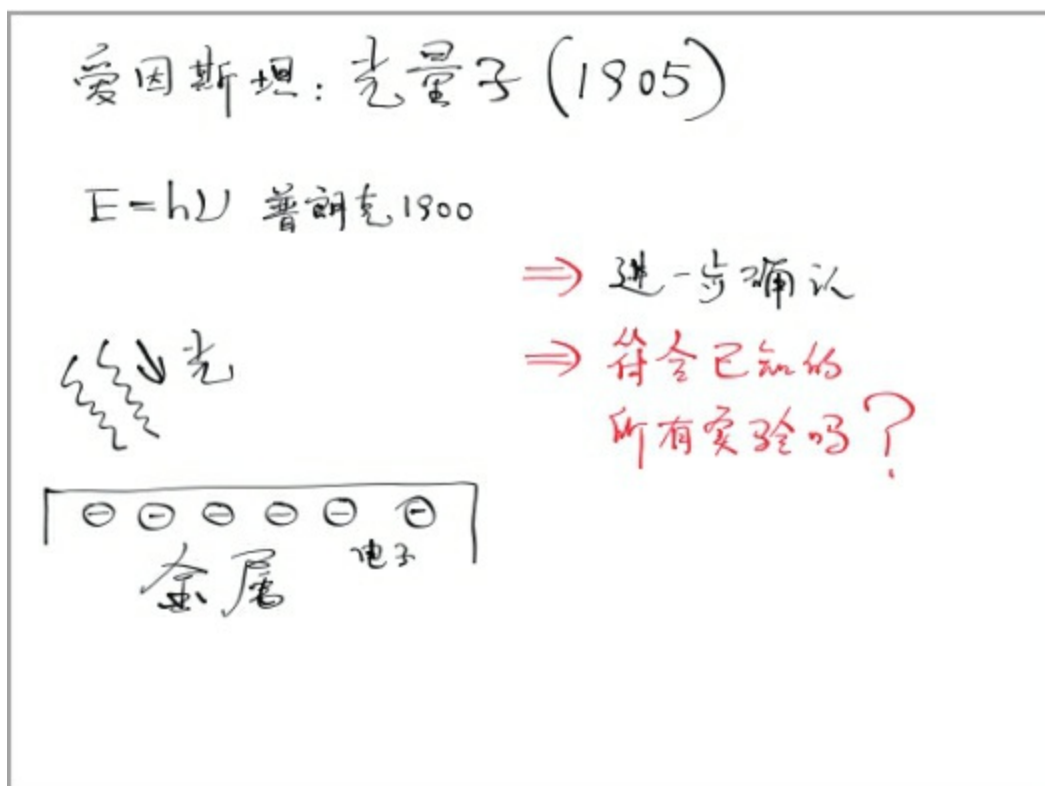 爱因斯坦: 光量子 (1905)
E=hν 普朗克1900
⇒ 进一步确认
光
⇒ 符合已知的
所有实验吗?
电子
金属